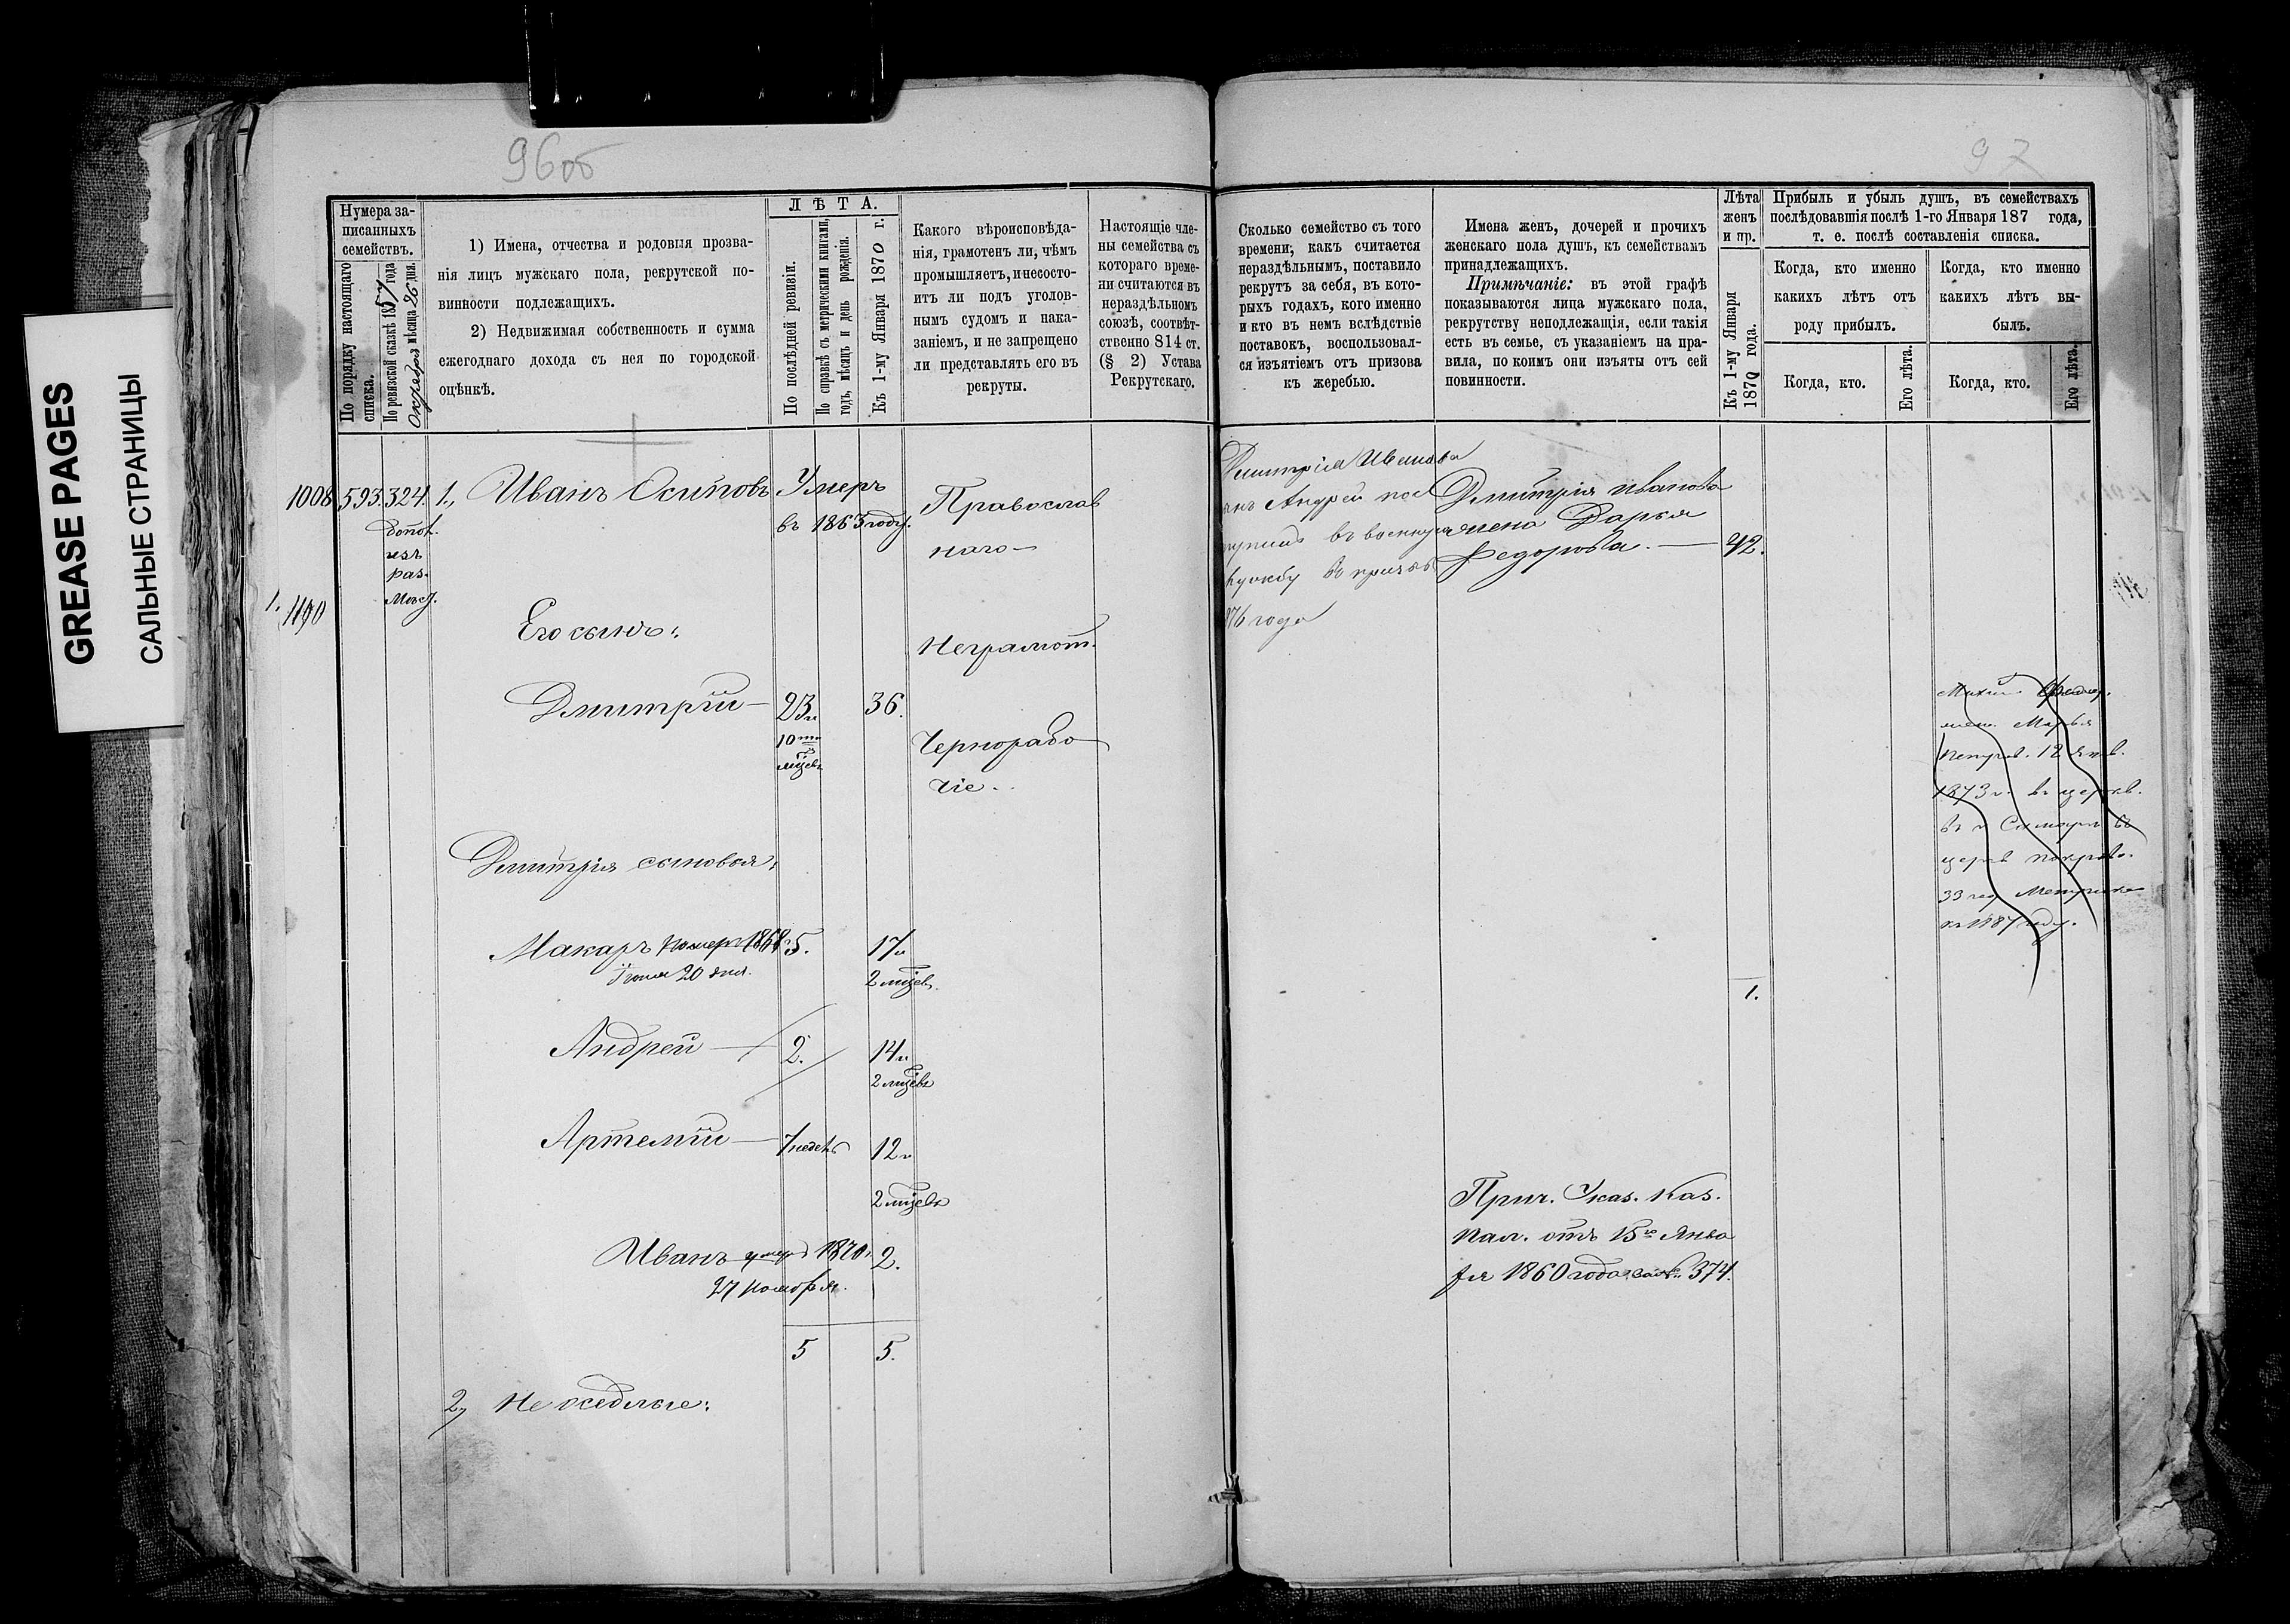 GREASE PAGES
САЛЬНЫЕ СТРАНИЦЫ
96об
97
Нумера за-
писанныхъ
семействъ.
По порядку настоящаго
списка.
По ревизской сказкѣ 1857 года
Октября мѣсяца 26 дня.
1) Имена, отчества и родовыя прозва-
нія лицъ мужскаго пола, рекрутской по-
винности подлежащихъ.
2) Недвижимая собственность и сумма
ежегоднаго дохода съ нея по городской
оцѣнкѣ.
ЛѢТА.
По послѣдней ревизіи.
По справкѣ съ метрическими книгами,
годъ, мѣсяцъ и день рожденія.
Къ 1-му Января 1870 г.
Какого вѣроисповѣда-
нія, грамотенъ ли, чѣмъ
промышляетъ, и несосто-
итъ ли подъ уголов-
нымъ судомъ и нака-
заніемъ, и не запрещено
ли представлять его въ
рекруты.
Настоящіе чле-
ны семейства съ
котораго време-
ни считаются въ
нераздѣльномъ
союзѣ, соотвѣт-
ственно 814 ст.
(§ 2) Устава
Рекрутскаго.
Сколько семейство съ того
времени, какъ считается
нераздѣльнымъ, поставило
рекрутъ за себя, въ кото-
рыхъ годахъ, кого именно
и кто въ немъ вслѣдствіе
поставокъ, воспользовал-
ся изъятіемъ отъ призова
къ жеребью.
Имена женъ, дочерей и прочихъ
женскаго пола душъ, къ семействамъ
принадлежащихъ.
Примѣчаніе: въ этой графѣ
показываются лица мужскаго пола,
рекрутству неподлежащія, если такія
есть въ семье, съ указаніемъ на пра-
вила, по коимъ они изъяты отъ сей
повинности.
Лѣта
женъ
и пр.
Къ 1-му Января
1870 года.
Прибыль и убыль душъ, въ семействахъ
послѣдовавшія послѣ 1-го Января 187 года,
т. е. послѣ составленія списка.
Когда, кто именно
какихъ лѣтъ отъ
роду прибылъ.
Когда, кто.
Его лѣта.
Когда, кто именно
какихъ лѣтъ вы-
былъ.
Когда, кто.
Его лѣта.
1008 593. 324. 1., Иванъ Осиповъ Умеръ
въ 1863 году.
Православ
наго
раз.
1190
Его сынъ:
Неграмот.
Дмитрій 23 36.
10
Чернорабо
чіе.
Дмитрія сыновья:
Макаръ померъ 1868 5. 17
20 дня. 2
Андрей 2. 14
2
Артемій 7 недель 12
2
Иванъ умеръ 1870 2.
27 ноября.
5 5.
2, Не оседлые:
Дмитрія Иванова
Андрей
въ военную
года
Дмитрія Иванова
жена Дарья
Федорова. 42.
1.
Прич. Указ. Каз.
Пал. отъ 15го Янва
ря 1860 года за № 374.
Марья
12 Янв.
1873 г. въ
Самары